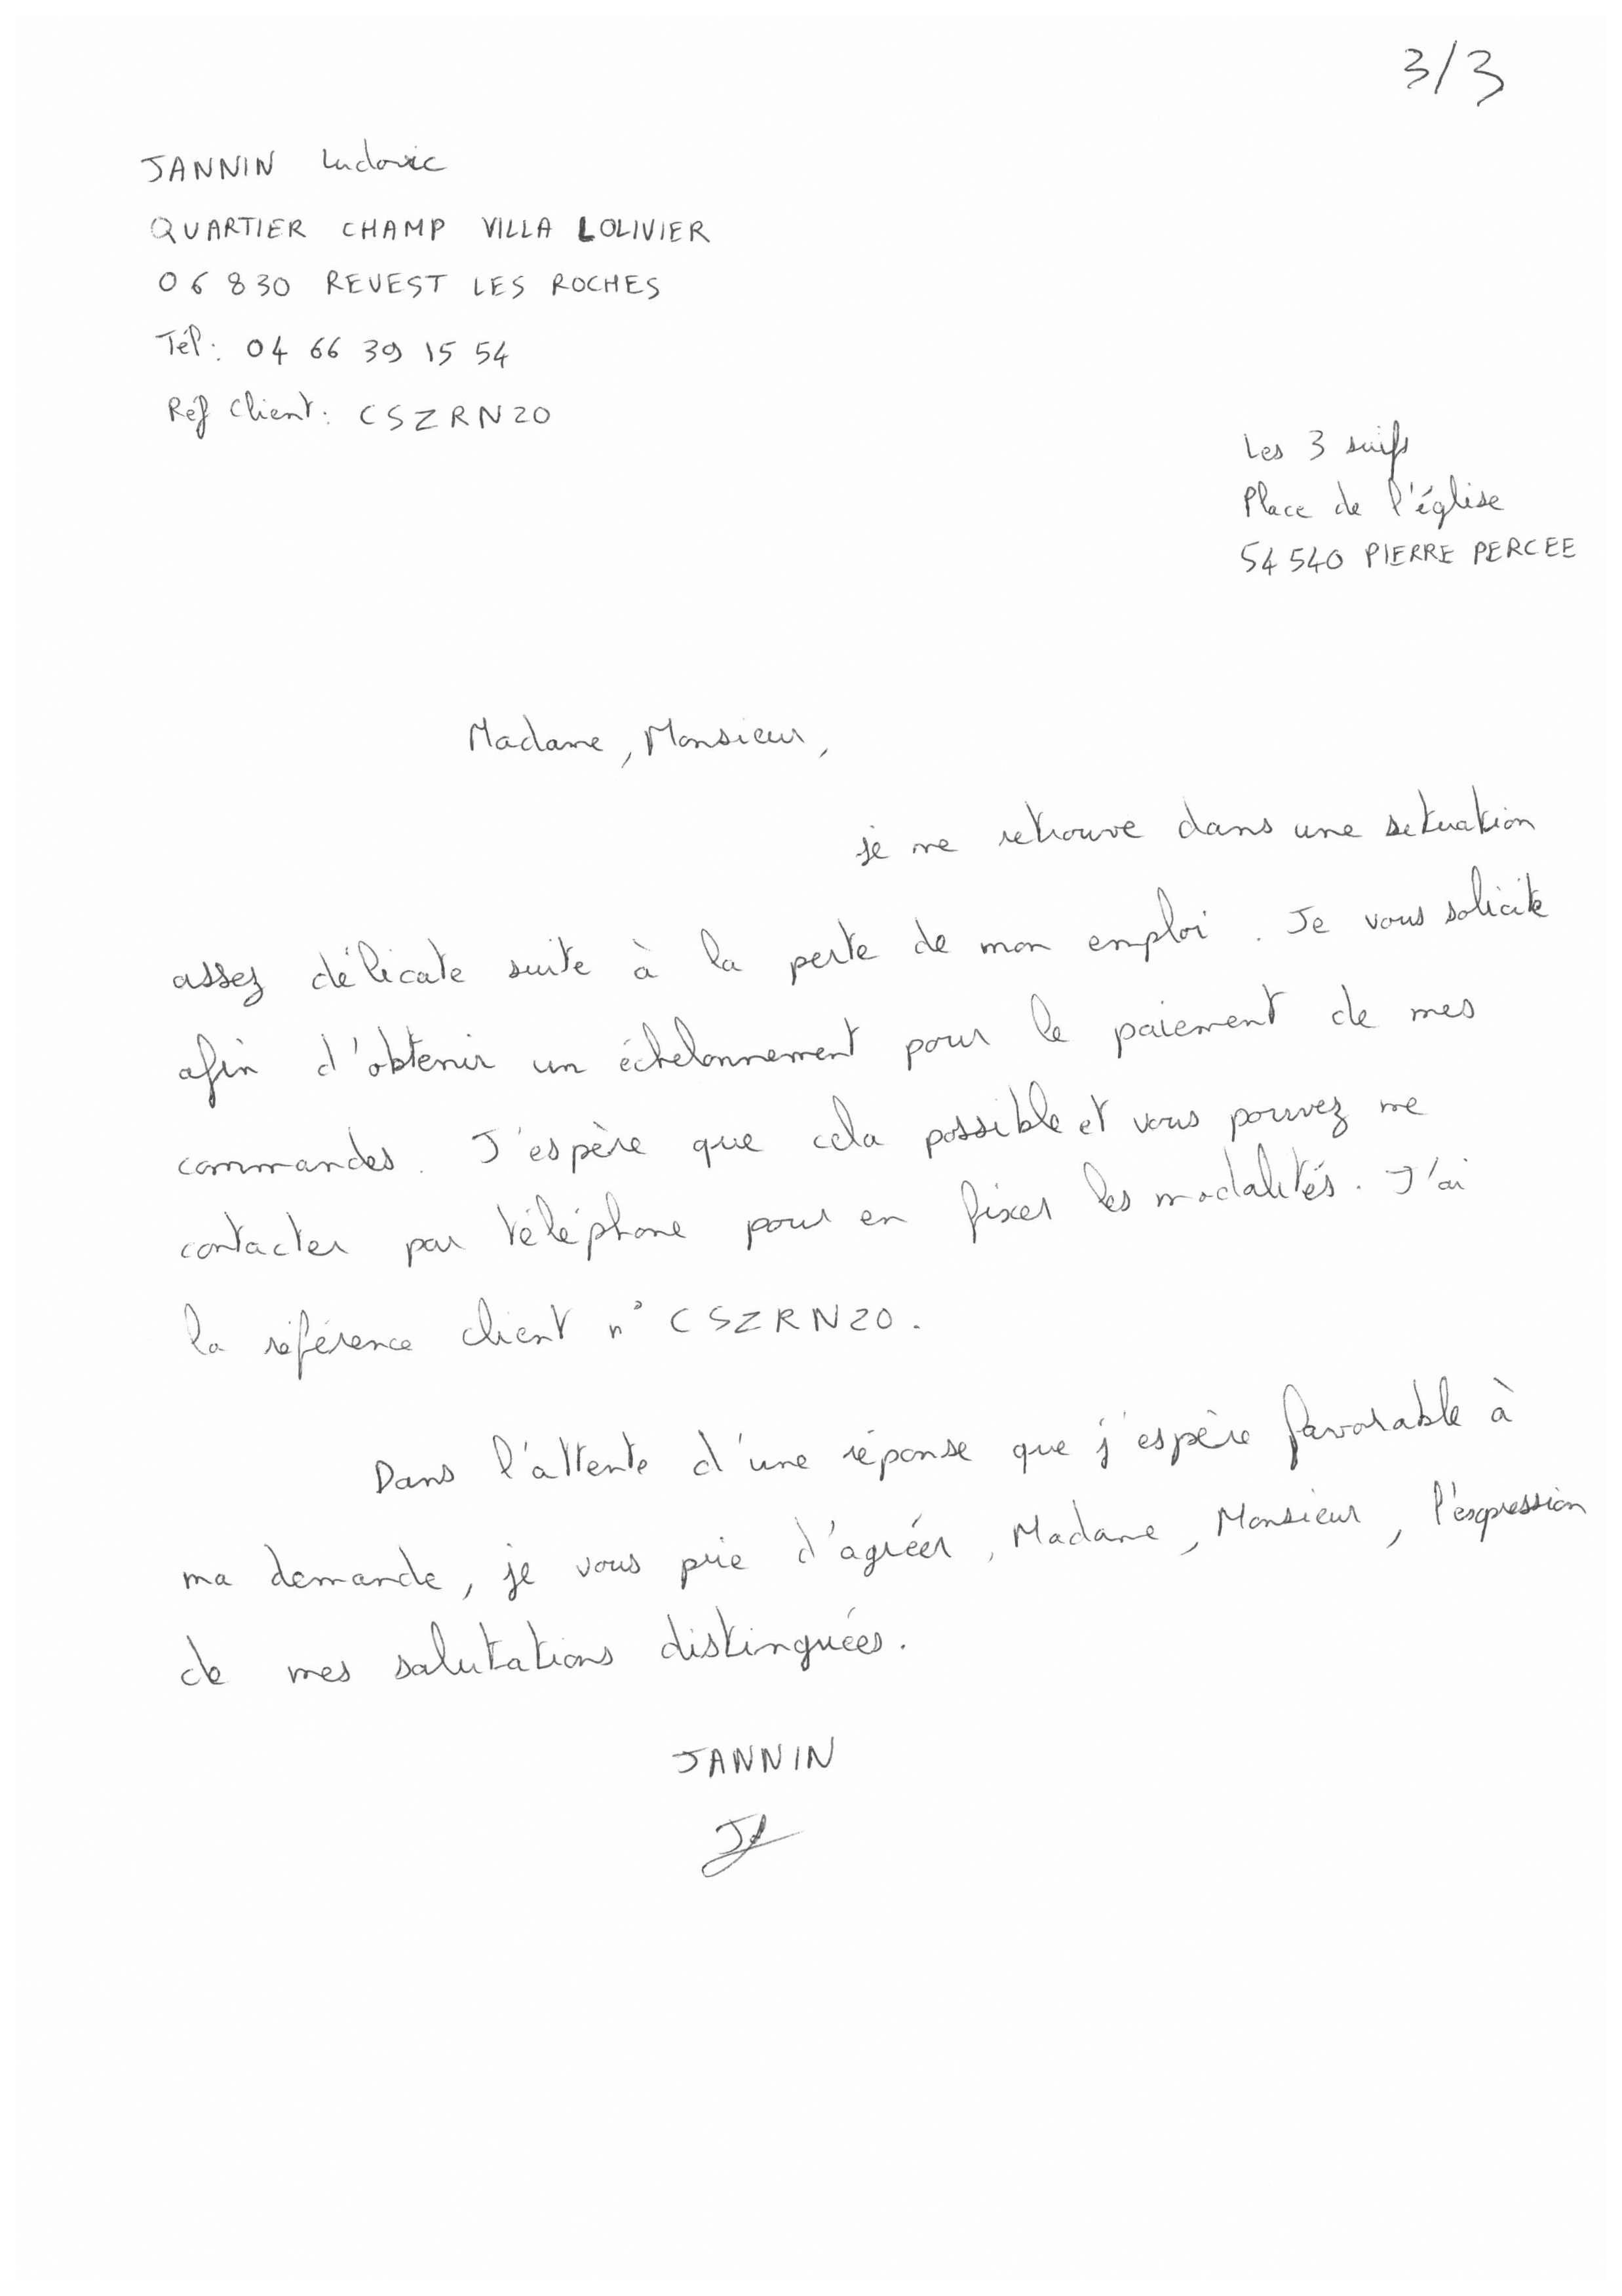 3/3
JANNIN Ludovic
QUARTIER CHAMP VILLA LOLIVIER
06830 REVEST LES ROCHES
Tél: 04 66 39 15 54
Réf Client: CSZRN20
Les 3 suifs
Place de l'église
54540 PIERRE PERCEE
Madame, Monsieur,
je me retrouve dans une situation
assez délicate suite à la perte de mon emploi. Je vous solicite
afin d'obtenir un échelonnement pour le paiement de mes
commandes. J'espère que cela possible et vous pouvez me
contacter par téléphone pour en fixer les modalités. J'ai
la référence client n° CSZRN20.
Dans l'attente d'une réponse que j'espère favorable à
ma demande, je vous prie d'agréer, Madame, Monsieur, l'expression
de mes salutations distinguées.
JANNIN